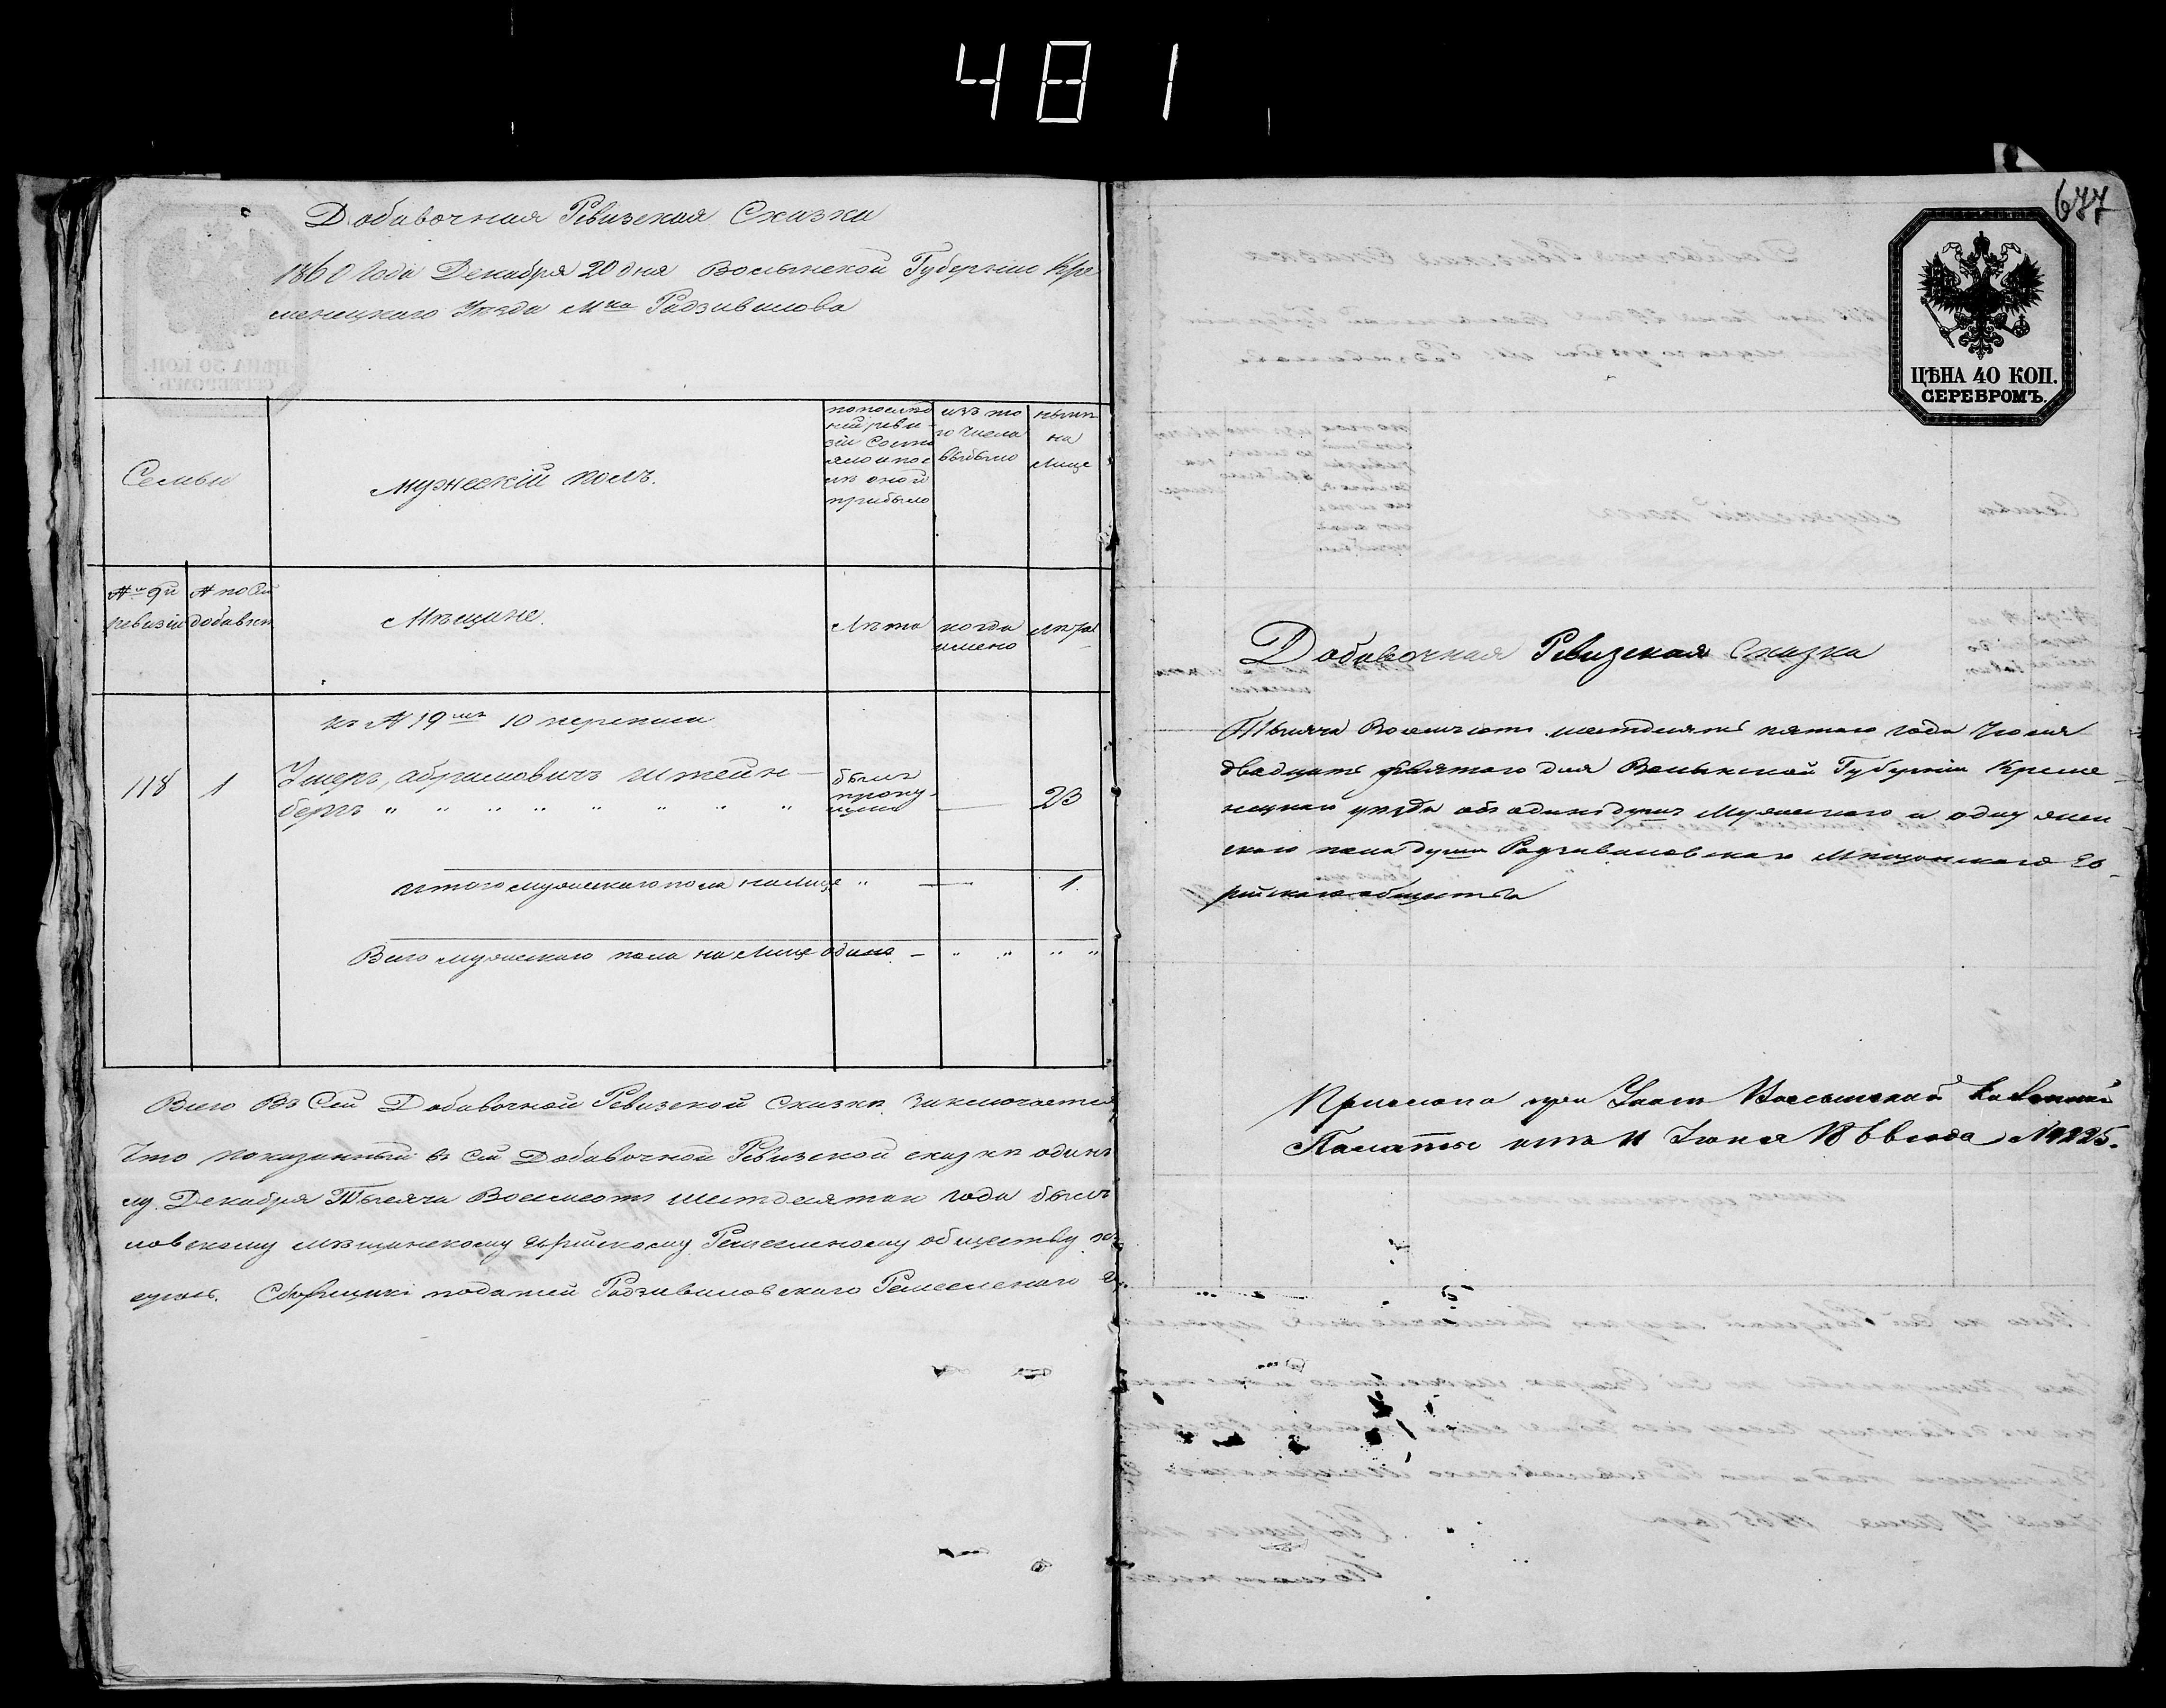 481
Добавочная Ревизская Сказка
1860 Года Декабря 20 дня Волынской Губерніи Кре
менецкаго Уезда Мка Радзивилова
Семьи
Мужескій полъ.
по послѣд
ней реви
зіи состо
яло и пос
лѣ оной
прибыло
изъ то
го числа
выбыло
нынѣ
на
лице
№ 9й
ревизіи
№ по сей
добавочн
Мѣщане.
Лѣта
когда
имено
Лѣта
къ № 19мъ 10 переписи
118
1
Умеръ, абрамовичъ штейн-
бергъ " " " " " " "
былъ
пропу-
щенъ
23
итого мужескаго пола на лице " — 1.
Всего мужескаго пола на лице одинъ — " " " "
Всего въ сей Добавочной Ревизской Сказки заключается
Что показанный въ сей Добавочной Ревизской сказки одинъ
му. Декабря Тысяча Восемсотъ шестдесятаго года былъ
ловскому мѣщанскому еврейскому Ремесленому обществу
Сборщикъ податей Радзивиловскаго Ремесленаго
677
ЦѢНА 40 КОП.
СЕРЕБРОМЪ.
Добавочная Ревизская Сказка
Тысяча Восемъсотъ шестдесятъ пятаго года Іюня
двадцать девятаго дня Волынской Губерніи Креме-
нецкаго уезда объ одинъ душъ Мужескаго и одну жен-
скаго пола души Радзивиловскаго Мѣщанскаго Ев-
рейскаго общества
Прислана при Указѣ Волынской Казенной
Палаты отъ 11 Іюня 1866 года № 9225.